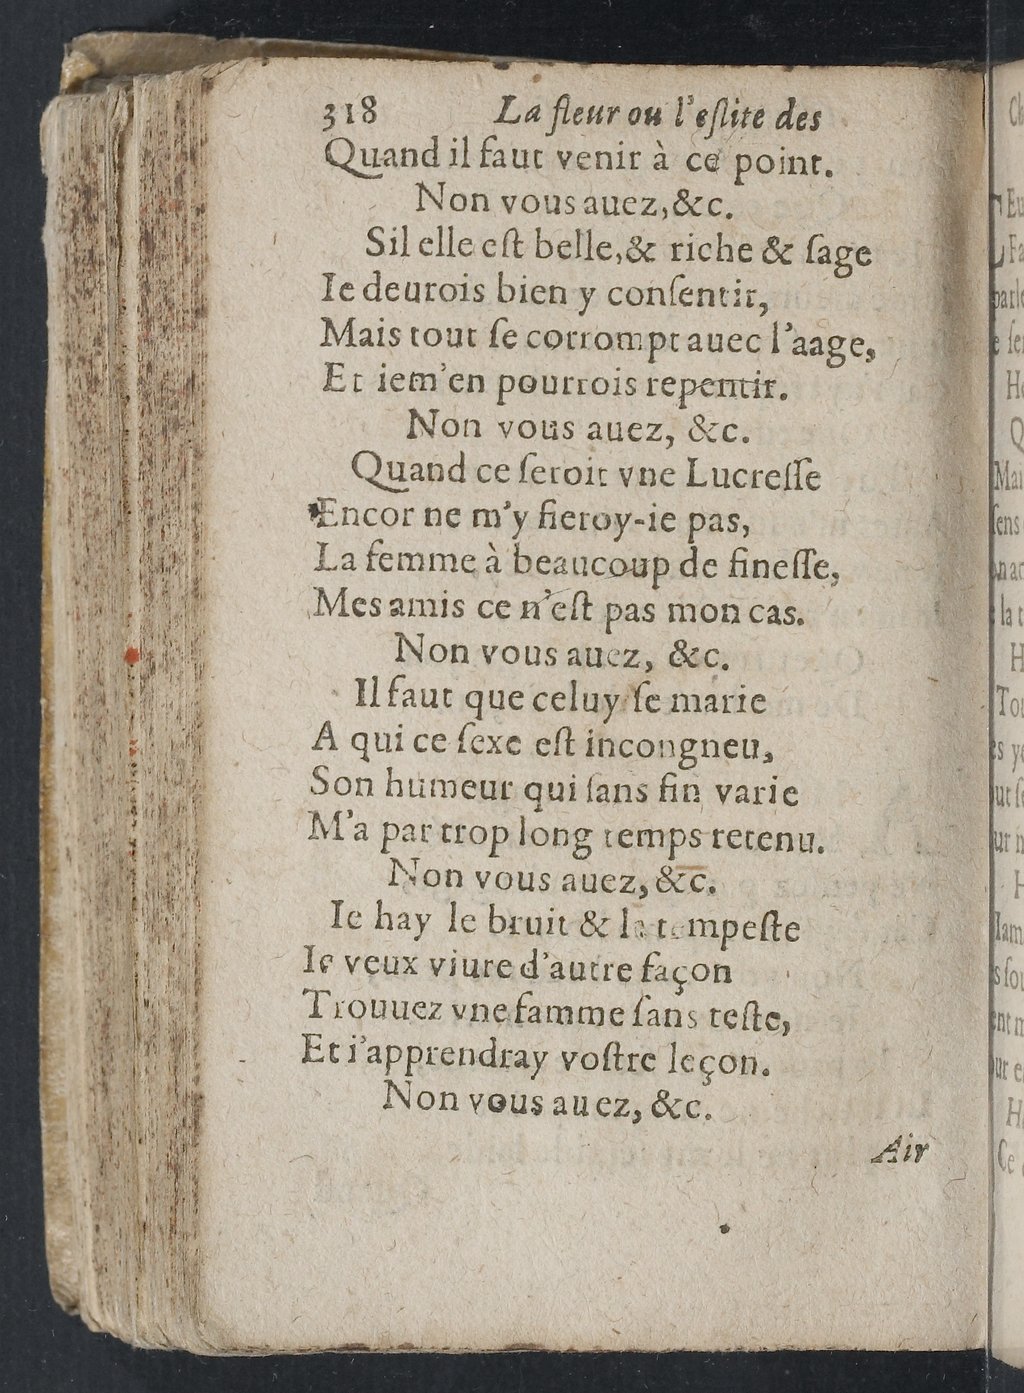 318 La fleur ou l'eſlite des
Quand il faut venir à ce point.
Non vous auez, &c.
Sil elle eſt belle, & riche & ſage
Ie deurois bien y conſentir,
Mais tout ſe corrompt auec l'aage,
Et iem'en pourrois repentir.
Non vous auez, &c.
Quand ce ſeroit vne Lucreſſe
Encor ne m'y fieroy-ie pas,
La femme à beaucoup de fineſſe,
Mes amis ce n'eſt pas mon cas.
Non vous auez, &c.
Il faut que celuy ſe marie
A qui ce ſexe eſt incongneu,
Son humeur qui ſans fin varie
M'a par trop long temps retenu.
Non vous auez, &c.
Ie hay le bruit & la tempeſte
Ie veux viure d'autre façon
Trouuez vne famme ſans teſte,
Et i'apprendray voſtre leçon.
Non vous auez, &c.
Air